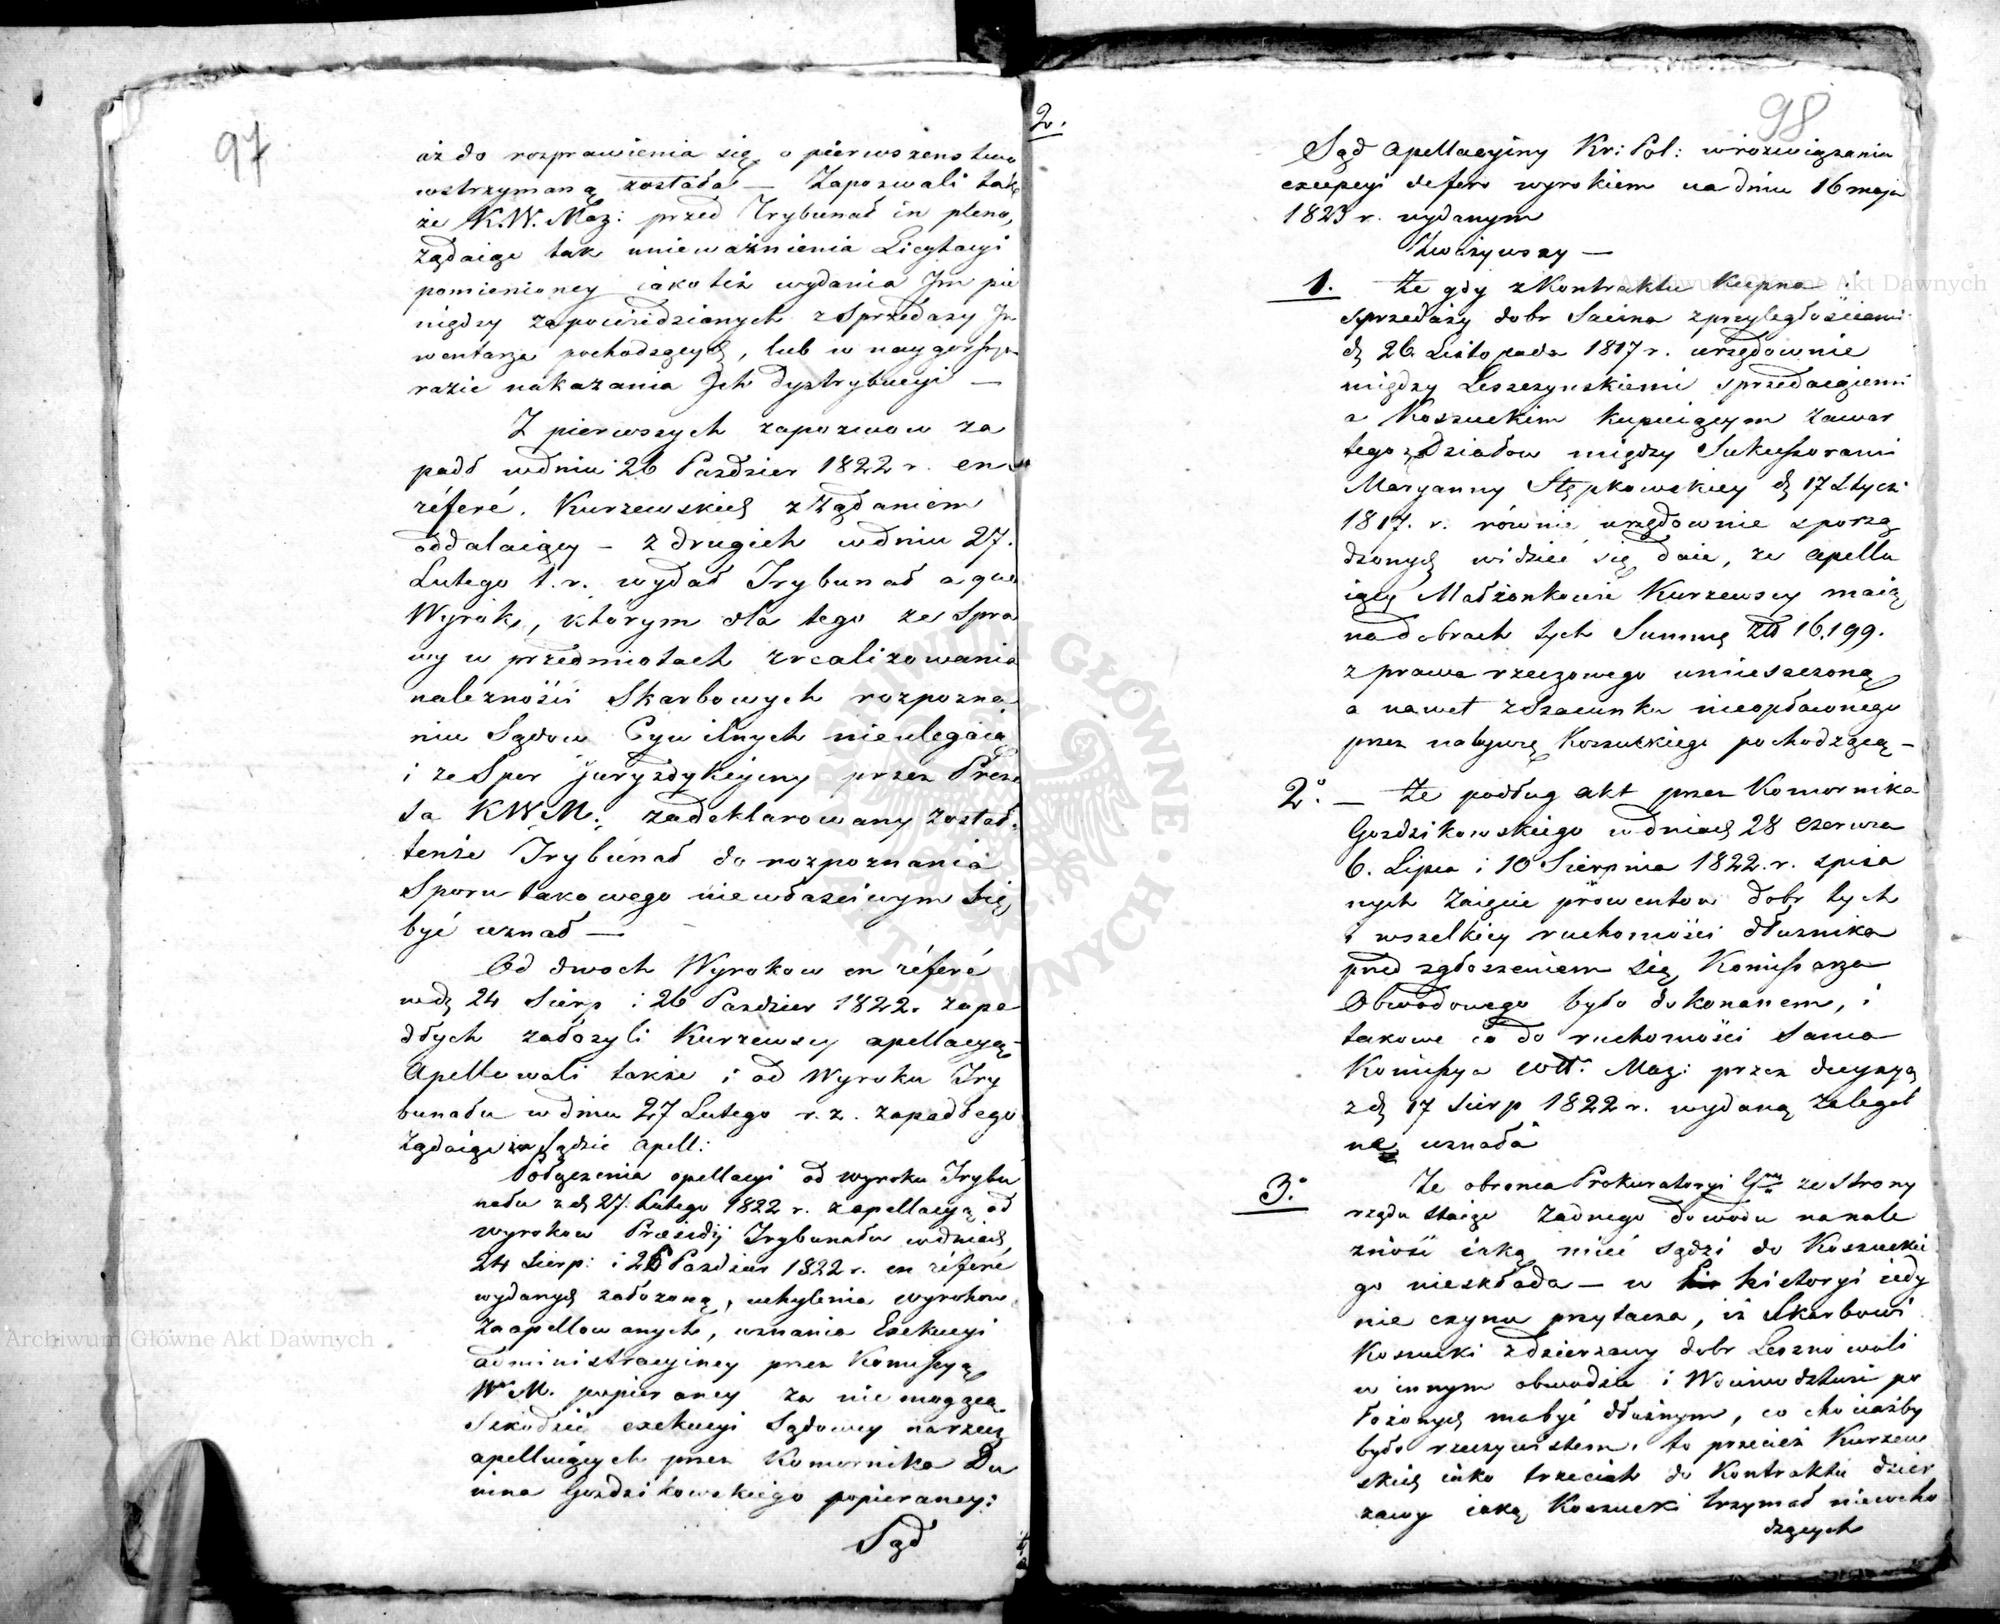 97
aż do rozprawienia się o pierwszenstwo
wstrzymaną została — Zapozwali tak
że K.W. Maz: przed Trybunał in pleno,
żądaiąc tak unieważnienia Licytacyi
pomienioney iakoteż wydania Im pie
niędzy zapowiedzianych z Sprzedaży In
wentarza pochodzących, lub w naygorszym
razie nakazania Ich Dystrybucyi —
Z pierwszych zapozwow za
padł w dniu 26 Pazdzier 1822 r. en
référé. Kurzewskich z Żądaniem
oddalaiący — z drugich w dniu 27.
Lutego t. r. wydał Trybunał a quo
Wyrok, którym dla tego ze Spra
wy w przedmiotach zrealizowania
należności Skarbowych rozpozna
niu Sądow Cywilnych nieulegaią
i ze Spor Juryzdykcyiny przez Preze
sa K.W.M. zadeklarowany został,
tenże Trybunał do rozpoznania
Sporu takowego niewłaściwym się
być uznał —
Od dwoch Wyrokow en référé
w dz 24 Sierp i 26 Pazdzier 1822. zapa
dłych założyli Kurzewscy apellacyą —
Apellowali także i od Wyroku Try
bunału w dniu 27 Lutego r. z. zapadłego
Żądaiąc w Sądzie Apell:
Połączenia apellacyi od wyroku Trybu
nału z d. 27. Lutego 1822 r. z apellacyą od
wyrokow Prezidij Trybunału w dniach
24 Sierp: i 26 Pazdzier 1822 r. en référé
wydanych założoną, uchylenia wyrokow
Zaapellowanych, uznania Exekucyi
administracyiney przez Kommissyą
W. M. popieraney za nie mogącą
Szkodzić exekucyi Sądowey na rzecz
apelluiących przez Komornika Du
nina Gozdzikowskiego popieraney:
Sąd
2.
98
Sąd Apellacyiny Kr: Pol: w rozwiązaniu
excepcyi defero wyrokiem na dniu 16 maja
1823 r. wydanym
Zważywszy —
1. Że gdy z Kontraktu Kupna i
Sprzedaży dobr Sacina z przyległościami
d. 26 Listopada 1817 r. urzędownie
między Leszczynskiemi sprzedaiącemi
a Koszuckim kupuiącym zawar
tego z Działow między Sukcessorami
Maryanny Stępkowskiey d. 17 Stycz:
1817. r. równie urzędownie sporzą
dzonych widzieć się daie, ze apellu
iący Małżonkowie Kurzewscy maią
na dobrach tych Summę zł 16.199.
z prawa rzeczowego umieszczoną
a nawet z Szacunku nieopłaconego
przez nabywcę Koszuckiego pochodzącą —
2°. — Że podług akt przez Komornika
Gozdzikowskiego w dniach 28 Czerwca
6. Lipca i 10 Sierpnia 1822. r. spisa
nych Zaięcie prowentow dobr tych
i wszelkiey ruchomości dłużnika
przed zgłoszeniem się Komissarza
Obwodowego było dokonanem, i
takowe co do ruchomości Sama
Komissya Wtt. Maz: przez decyzyą
z d. 17 Sierp 1822 r. wydaną za legal
ne uznała
3° Że obronca Prokuratoryi Gnney ze strony
rządu staiąc żadnego dowodu na nale
żność iaką mieć sądzi do Koszuckie
go nieskłada — w historyi iedy
nie czynu przytacza, iż Skarbowi
Koszucki z dzierzawy dobr Leszno woli
w innym obwodzie i Woiewodztwie po
łożonych ma być dłużnym, co chociażby
było rzeczywistem, to przecież Kurzew
skich iako trzecich do Kontraktu dzier
zawy iaką Koszucki trzymał niewcho
dzących
Archiwum Główne Akt Dawnych
Archiwum Główne Akt Dawnych
ARCHIWUM GŁÓWNE AKT DAWNYCH